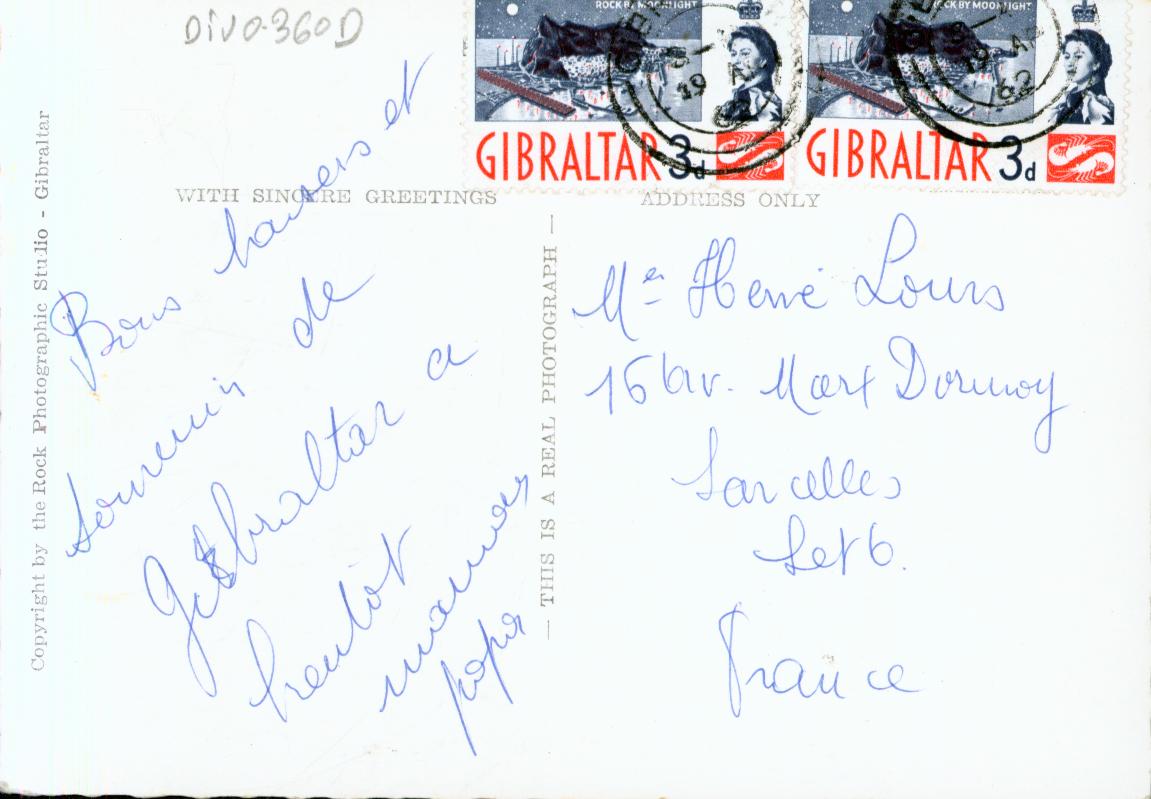 DIVO-360D
ROCK BY MOONLIGHT
GIBRALTAR 3d
ROCK BY MOONLIGHT
GIBRALTAR 3d
19 AP
62
WITH SINCERE GREETINGS
ADDRESS ONLY
Copyright by the Rock Photographic Studio - Gibraltar
— THIS IS A REAL PHOTOGRAPH —
Bons baisers et
souvenir de
Gibraltar a
bientôt
maman
papa
Mer Hervé Louis
16 av. Marx Dormoy
Sarcelles
Set 6.
France